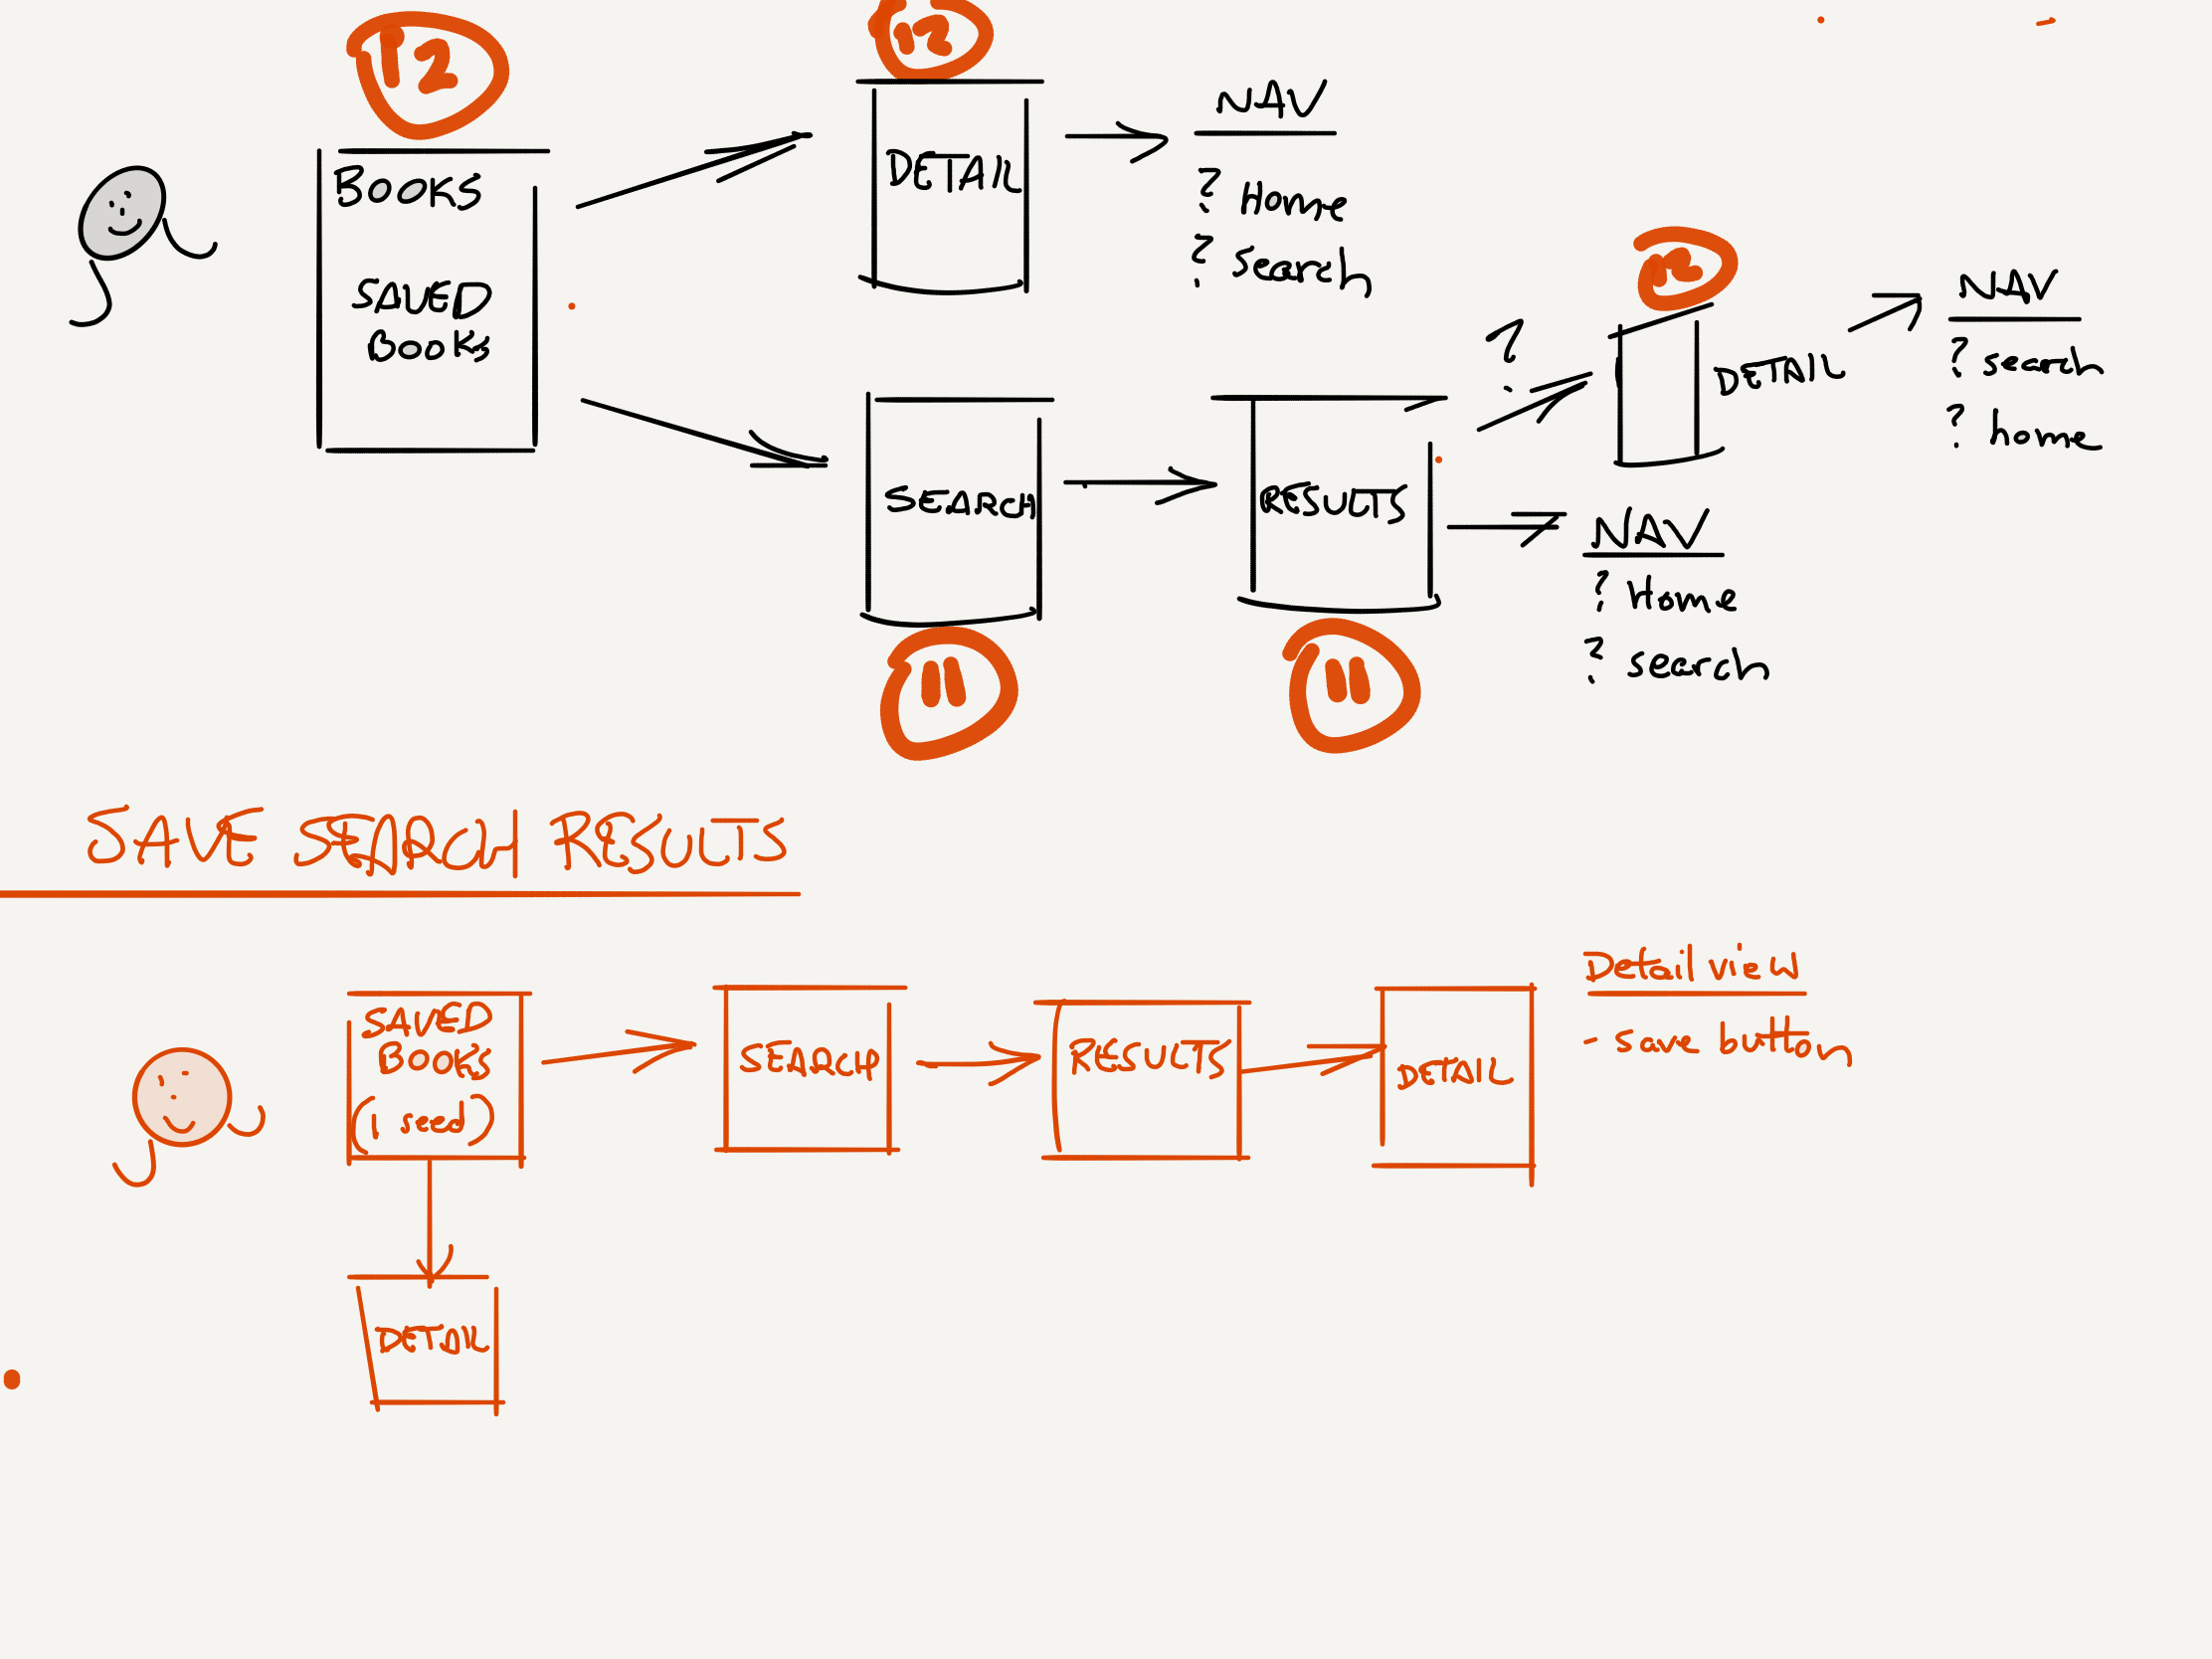 12
BOOKS
SAVED
BOOKS
12
DETAIL
NAV
? Home
? search
SEARCH
11
RESULTS
11
?
12
DETAIL
NAV
? search
? home
NAV
? Home
? search
SAVE SEARCH RESULTS
SAVED
BOOKS
(1 seed)
SEARCH
RESULTS
DETAIL
Detail view
- save button
DETAIL